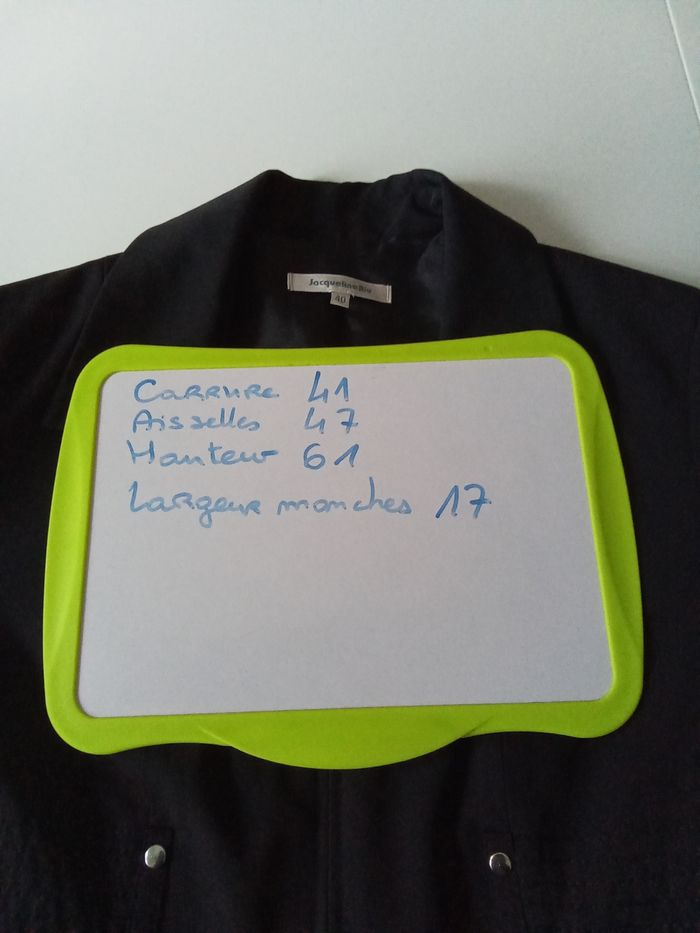 Jacqueline Riu
40
Carrure 41
Aisselles 47
Hauteur 61
Largeur manches 17